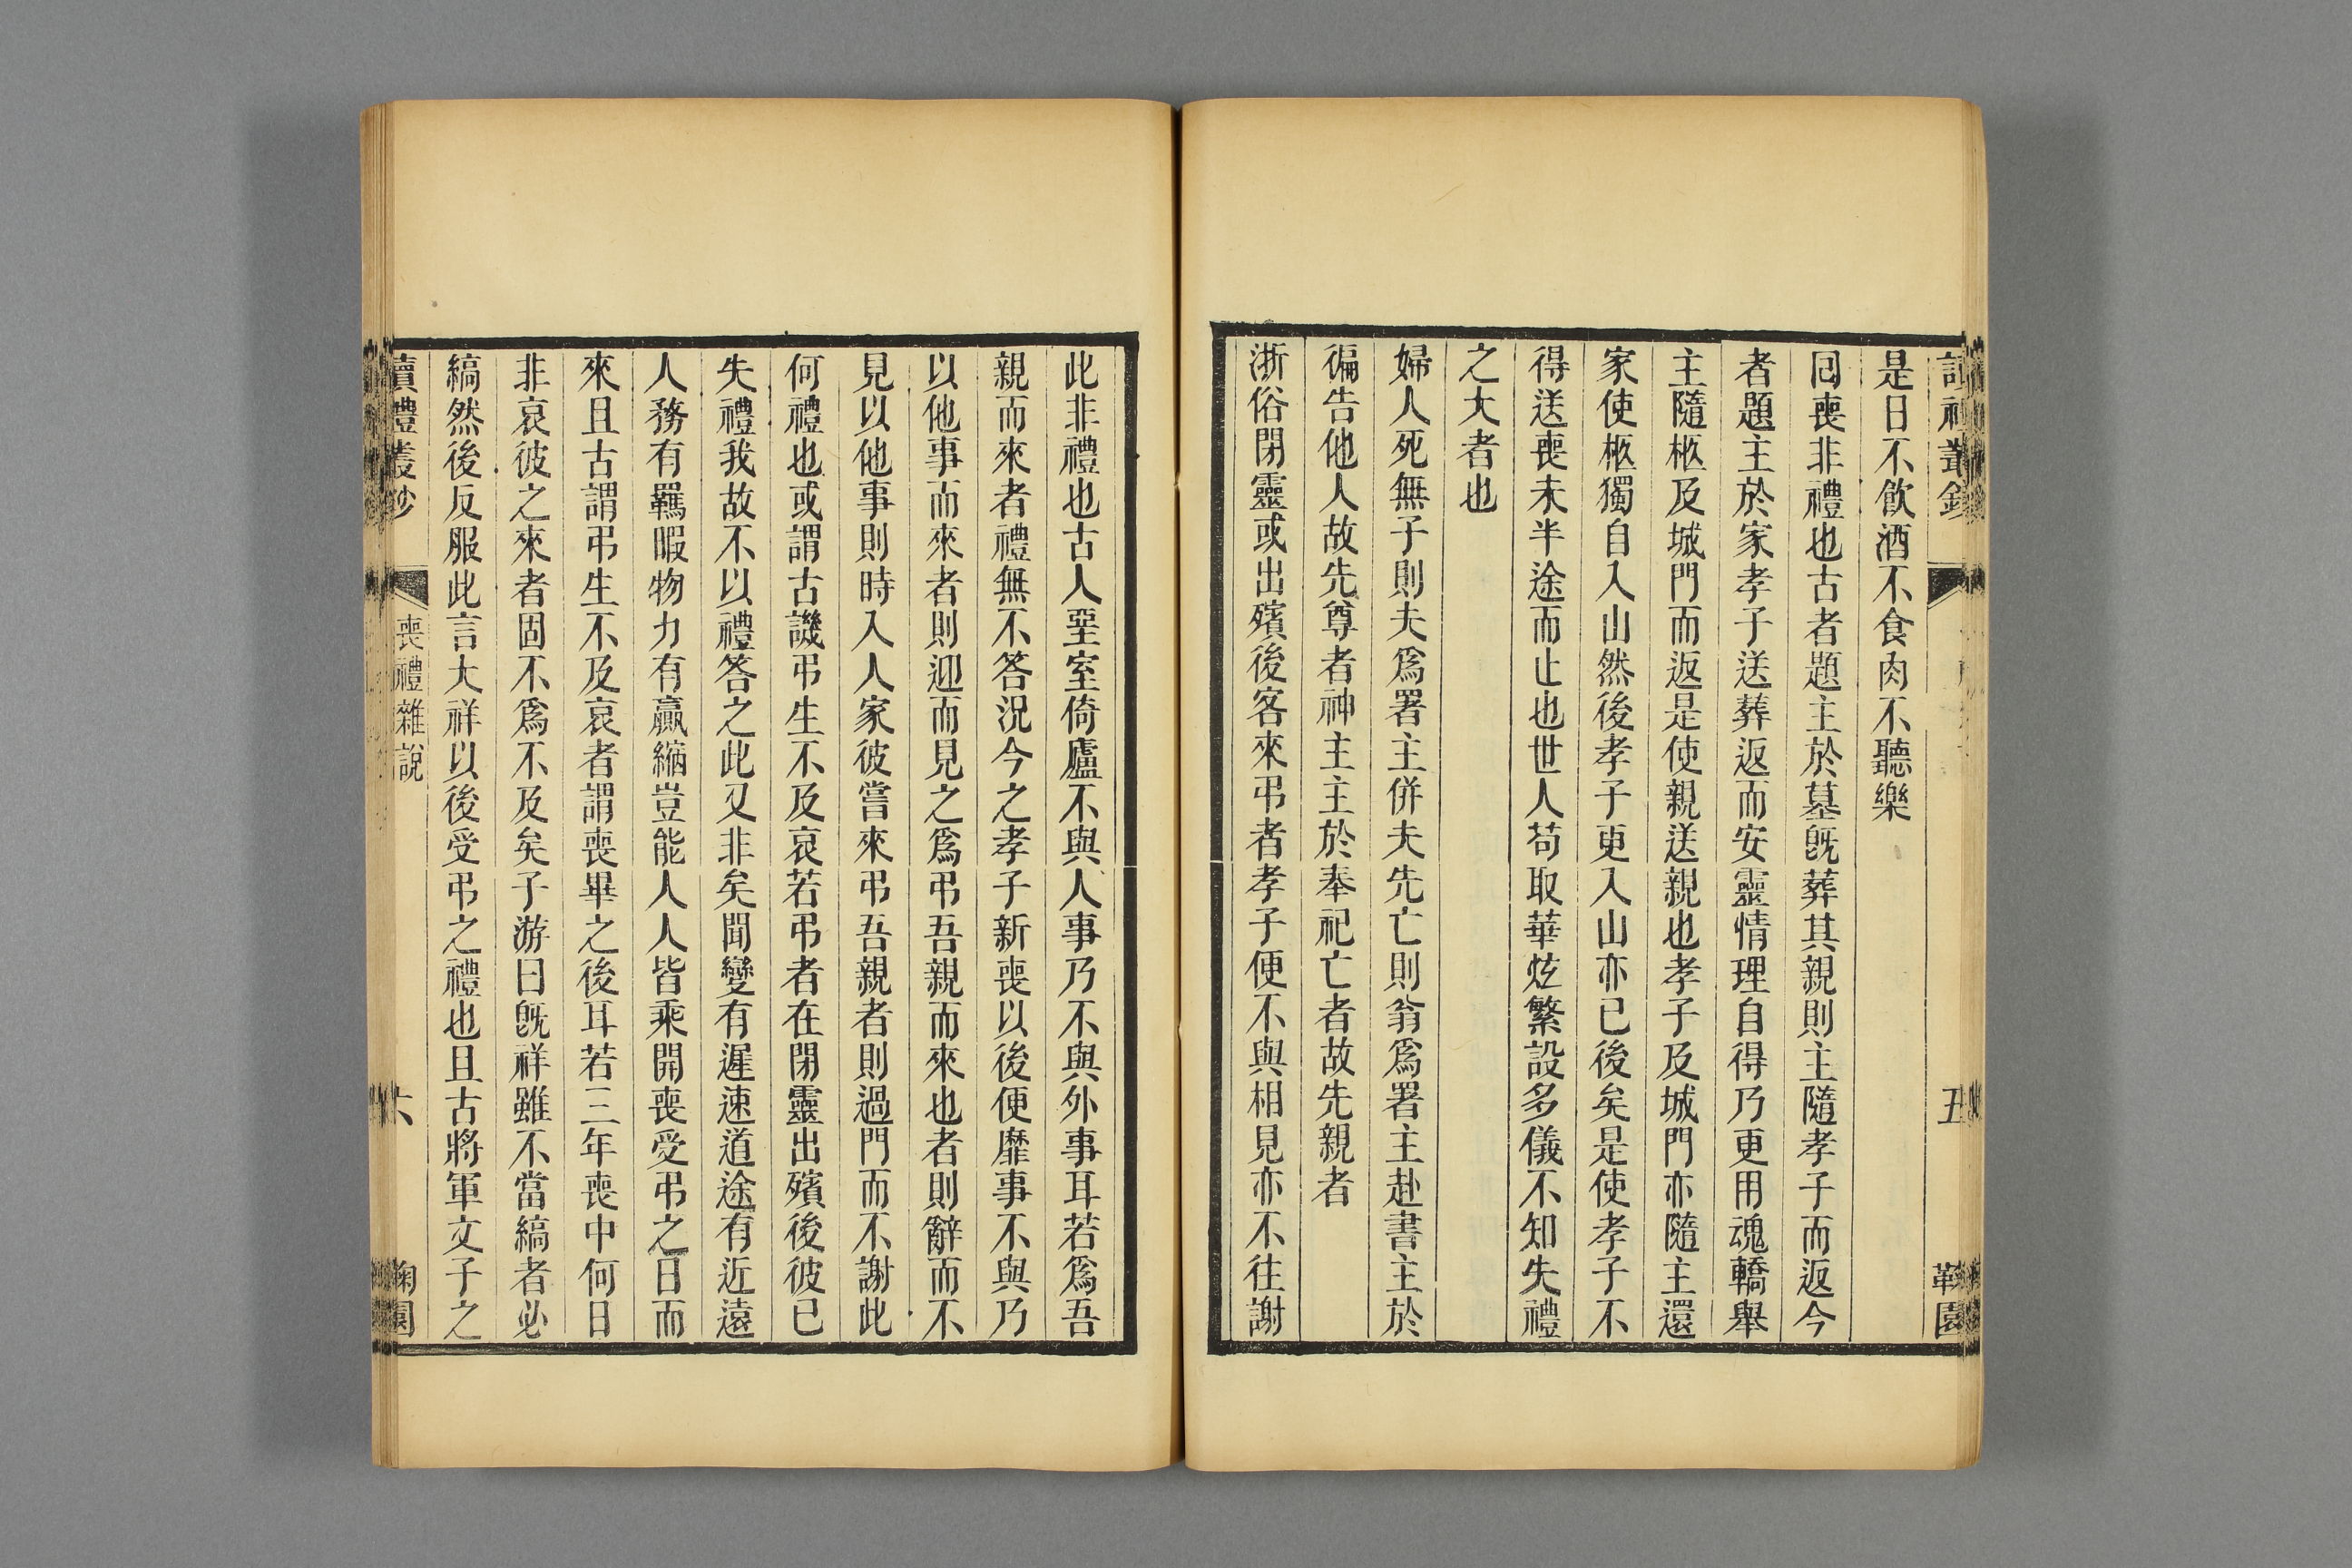 是日不飲酒不食肉不聽樂
囘喪非禮也古者題主於墓既葬其親則主隨孝子而返今
者題主於家孝子送葬返而安靈情理自得乃更用魂轎舉
主隨柩及城門而返是使親送親也孝子及城門亦隨主還
家使柩獨自入山然後孝子更入山亦已後矣是使孝子不
得送喪未半途而止也世人苟取華炫繁設多儀不知失禮
之大者也
婦人死無子則夫爲署主併夫先亡則翁爲署主赴書主於
徧告他人故先尊者神主主於奉祀亡者故先親者
浙俗閉靈或出殯後客來弔者孝子便不與相見亦不往謝
此非禮也古人堊室倚廬不與人事乃不與外事耳若爲吾
親而來者禮無不答況今之孝子新喪以後便靡事不與乃
以他事而來者則迎而見之爲弔吾親而來也者則辭而不
見以他事則時入人家彼嘗來弔吾親者則過門而不謝此
何禮也或謂古譏弔生不及哀若弔者在閉靈出殯後彼已
失禮我故不以禮答之此又非矣聞變有遲速道途有近遠
人務有羈暇物力有贏縮豈能人人皆乘開喪受弔之日而
來且古謂弔生不及哀者謂喪畢之後耳若三年喪中何日
非哀彼之來者固不爲不及矣子游曰既祥雖不當縞者必
縞然後反服此言大祥以後受弔之禮也且古將軍文子之
讀禮叢鈔
喪禮雜說
六